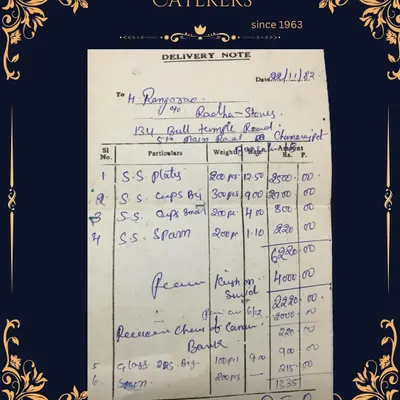 CATERERS
since 1963
DELIVERY NOTE
Date 22/11/82
To H. Rangarao
c/o Radha Stores
134 Bull temple Road
5th Main Road Chamarajpet
Sl No. Particulars Weight Rate Amount Rs. P.
1 S.S. plates 200 ps 12.50 2500 00
2 S.S. cups Big 300 ps 9.00 2700 00
3 S.S. cups Small 200 ps 4.00 800 00
4 S.S. Spoon 200 ps 1.10 220 00
6220 00
4000 00
2220 00
2000 00
220 00
Bank
5 Glass Big 100 ps 9.00 900 00
6 200 ps — 215 00
1335